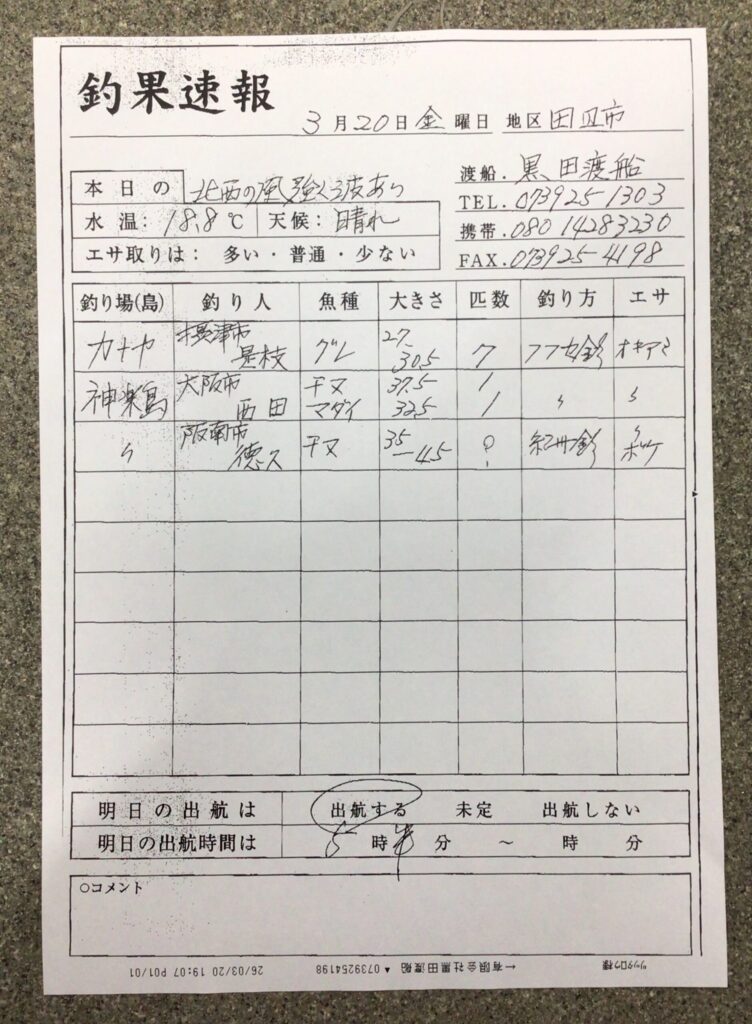 釣果速報
3月20日金曜日 地区 田辺市
渡船. 黒田渡船
TEL. 0739251303
携帯. 08014283230
FAX. 0739254198
本日の 北西の風強く波あり
水温: 18.8℃ 天候: 晴れ
エサ取りは: 多い・普通・少ない
釣り場(島) 釣り人 魚種 大きさ 匹数 釣り方 エサ
カナヤ 摂津市 是枝 グレ 27. 30.5 7 フカセ釣 オキアミ
神楽島 大阪市 西田 チヌ 37.5 1 〃 〃
マダイ 32.5 1
〃 阪南市 徳久 チヌ 35 ー45 9 紀州釣 〃 ボケ
明日の出航は 出航する 未定 出航しない
明日の出航時間は 5時半分 ～ 時 分
○コメント
リックロウ様
←有限会社黒田渡船 ▲0739254198
26/03/20 19:07 P01/01